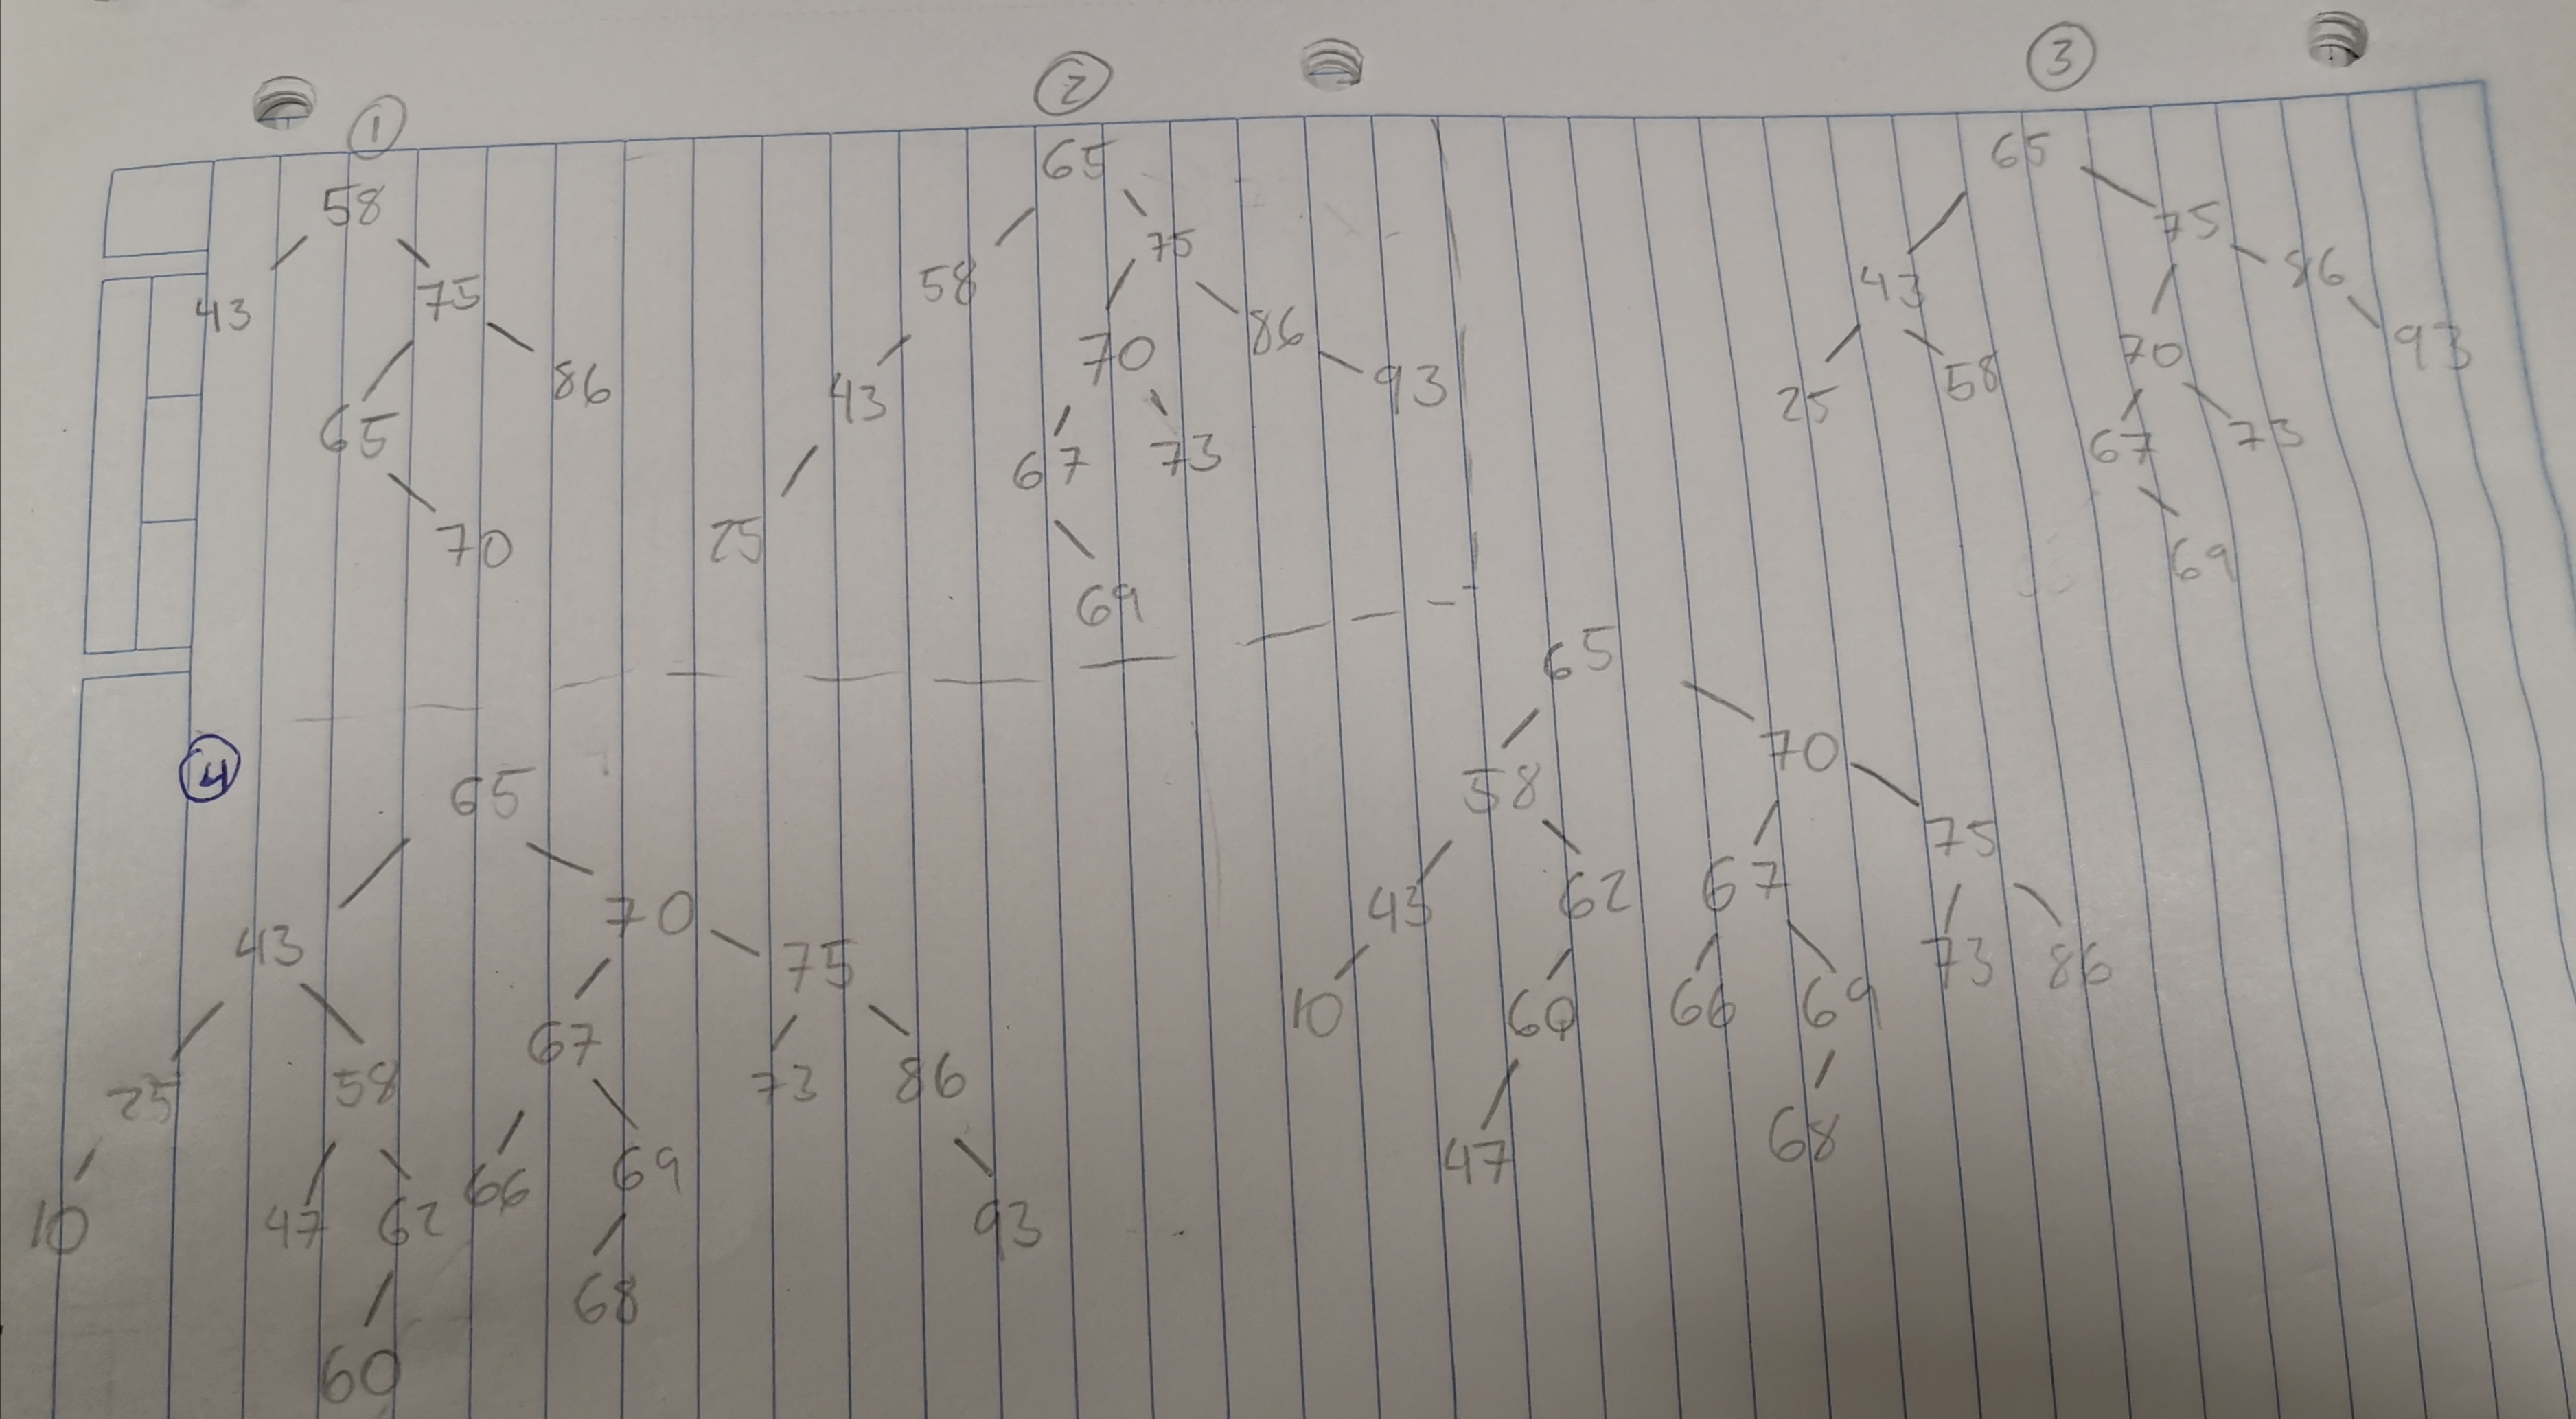 ① ② ③
58
43 75
65 86
70
65
58 75
43 70 86
25 67 73 93
69
65
43 75
25 58 70 86
67 73 93
69
④
65
43 70
25 58 67 75
10 47 62 66 69 73 86
60 68 93
65
58 70
43 62 67 75
10 60 66 69 73 86
47 68